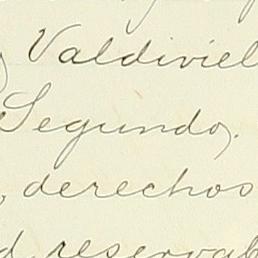 Valdiviel
Segundo,
, derechos
d, reserval